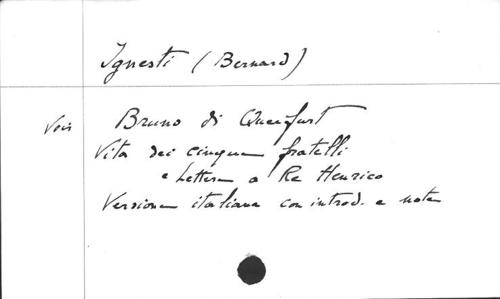 Ignesti (Bernard)
Voir Bruno di Querfurt
Vita dei cinque fratelli
e Lettera a Re Henrico
Versione italiana con introd. e note